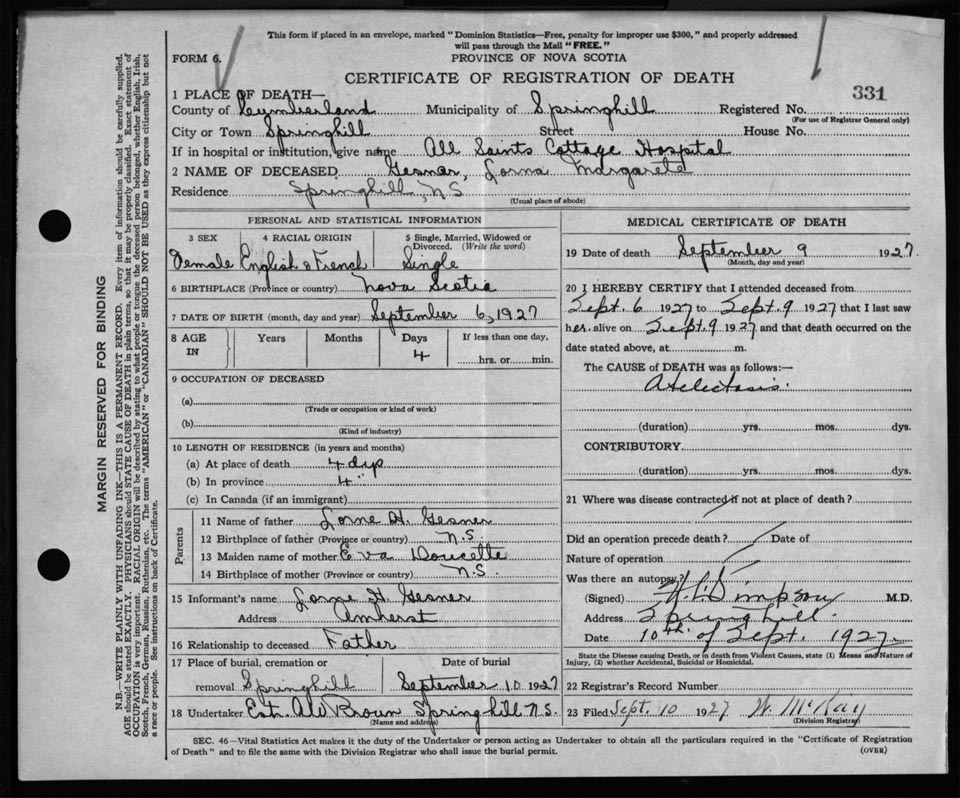 This form if placed in an envelope, marked "Dominion Statistics—Free, penalty for improper use $300," and properly addressed
will pass through the Mail "FREE."
FORM 6.
PROVINCE OF NOVA SCOTIA
CERTIFICATE OF REGISTRATION OF DEATH
331
1 PLACE OF DEATH—
County of Cumberland Municipality of Springhill Registered No.
(For use of Registrar General only)
City or Town Springhill Street House No.
If in hospital or institution, give name All Saints Cottage Hospital
2 NAME OF DECEASED Gesner, Lorna Margareta
Residence Springhill, N S
(Usual place of abode)
PERSONAL AND STATISTICAL INFORMATION
3 SEX 4 RACIAL ORIGIN 5 Single, Married, Widowed or Divorced. (Write the word)
Female English & French Single
6 BIRTHPLACE (Province or country) Nova Scotia
7 DATE OF BIRTH (month, day and year) September 6, 1927
8 AGE IN Years Months Days If less than one day,
4 hrs. or min.
9 OCCUPATION OF DECEASED
(a)
(Trade or occupation or kind of work)
(b)
(Kind of industry)
10 LENGTH OF RESIDENCE (in years and months)
(a) At place of death 4 dys
(b) In province 4 "
(c) In Canada (if an immigrant)
Parents
11 Name of father Lorne H. Gesner
12 Birthplace of father (Province or country) N.S.
13 Maiden name of mother Eva Doucette
14 Birthplace of mother (Province or country) N.S.
15 Informant's name Lorne H. Gesner
Address Amherst
16 Relationship to deceased Father
17 Place of burial, cremation or Date of burial
removal Springhill September 10 1927
18 Undertaker Est. Brown Springhill N.S.
(Name and address)
MEDICAL CERTIFICATE OF DEATH
19 Date of death September 9 1927
(Month, day and year)
20 I HEREBY CERTIFY that I attended deceased from
Sept. 6 1927 to Sept. 9 1927 that I last saw
her alive on Sept. 9 1927 and that death occurred on the
date stated above, at m.
The CAUSE of DEATH was as follows:—
Atelectasis.
(duration) yrs. mos. dys.
CONTRIBUTORY.
(duration) yrs. mos. dys.
21 Where was disease contracted if not at place of death?
Did an operation precede death? Date of
Nature of operation
Was there an autopsy?
(Signed) Simpson M.D.
Address Springhill.
Date 10th of Sept. 1927
State the Disease causing Death, or in death from Violent Causes, state (1) Means and Nature of
Injury, (2) whether Accidental, Suicidal or Homicidal.
22 Registrar's Record Number
23 Filed Sept. 10 1927 W. McKay
(Division Registrar)
SEC. 46—Vital Statistics Act makes it the duty of the Undertaker or person acting as Undertaker to obtain all the particulars required in the "Certificate of Registration
of Death" and to file the same with the Division Registrar who shall issue the burial permit.
(OVER)
MARGIN RESERVED FOR BINDING
N.B.—WRITE PLAINLY WITH UNFADING INK—THIS IS A PERMANENT RECORD. Every item of information should be carefully supplied.
AGE should be stated EXACTLY. PHYSICIANS should STATE CAUSE OF DEATH in plain terms, so that it may be properly classified. Exact statement of
OCCUPATION is very important. RACIAL ORIGIN will be described by stating to what people or tongue the deceased person belonged, whether English, Irish,
Scotch, French, German, Russian, Ruthenian, etc. The terms "AMERICAN" or "CANADIAN" SHOULD NOT BE USED as they express citizenship but not
a race or people. See instructions on back of Certificate.